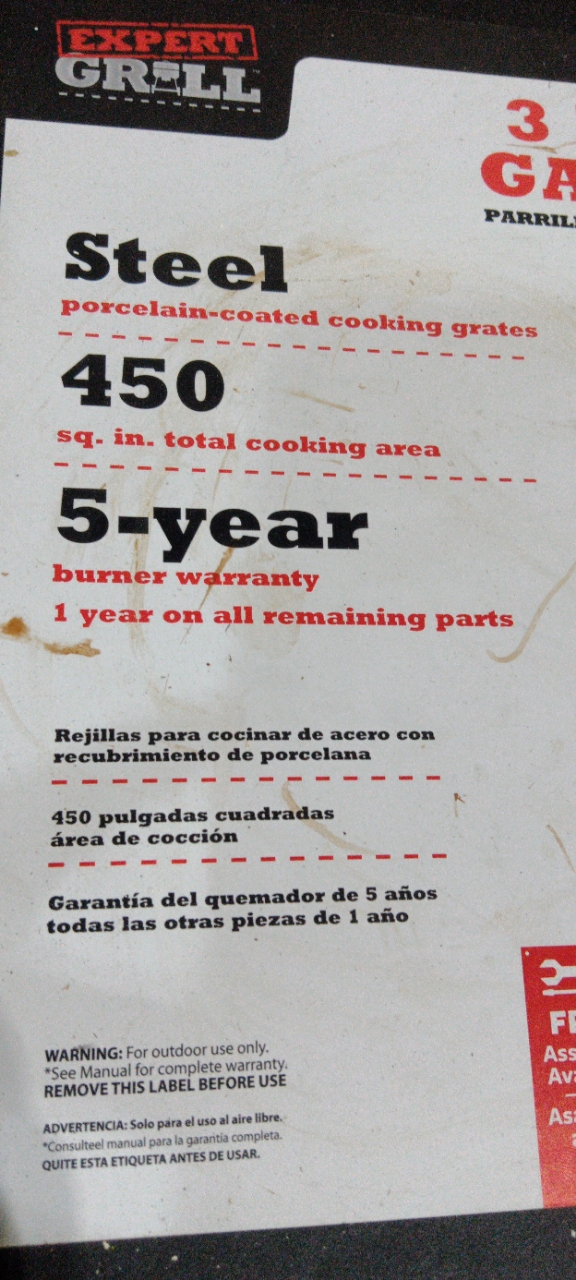 EXPERT
GRILL
3
GA
PARRIL
Steel
porcelain-coated cooking grates
450
sq. in. total cooking area
5-year
burner warranty
1 year on all remaining parts
Rejillas para cocinar de acero con
recubrimiento de porcelana
450 pulgadas cuadradas
área de cocción
Garantía del quemador de 5 años
todas las otras piezas de 1 año
WARNING: For outdoor use only.
*See Manual for complete warranty.
REMOVE THIS LABEL BEFORE USE
ADVERTENCIA: Solo para el uso al aire libre.
*Consulteel manual para la garantía completa.
QUITE ESTA ETIQUETA ANTES DE USAR.
Ass
Ava